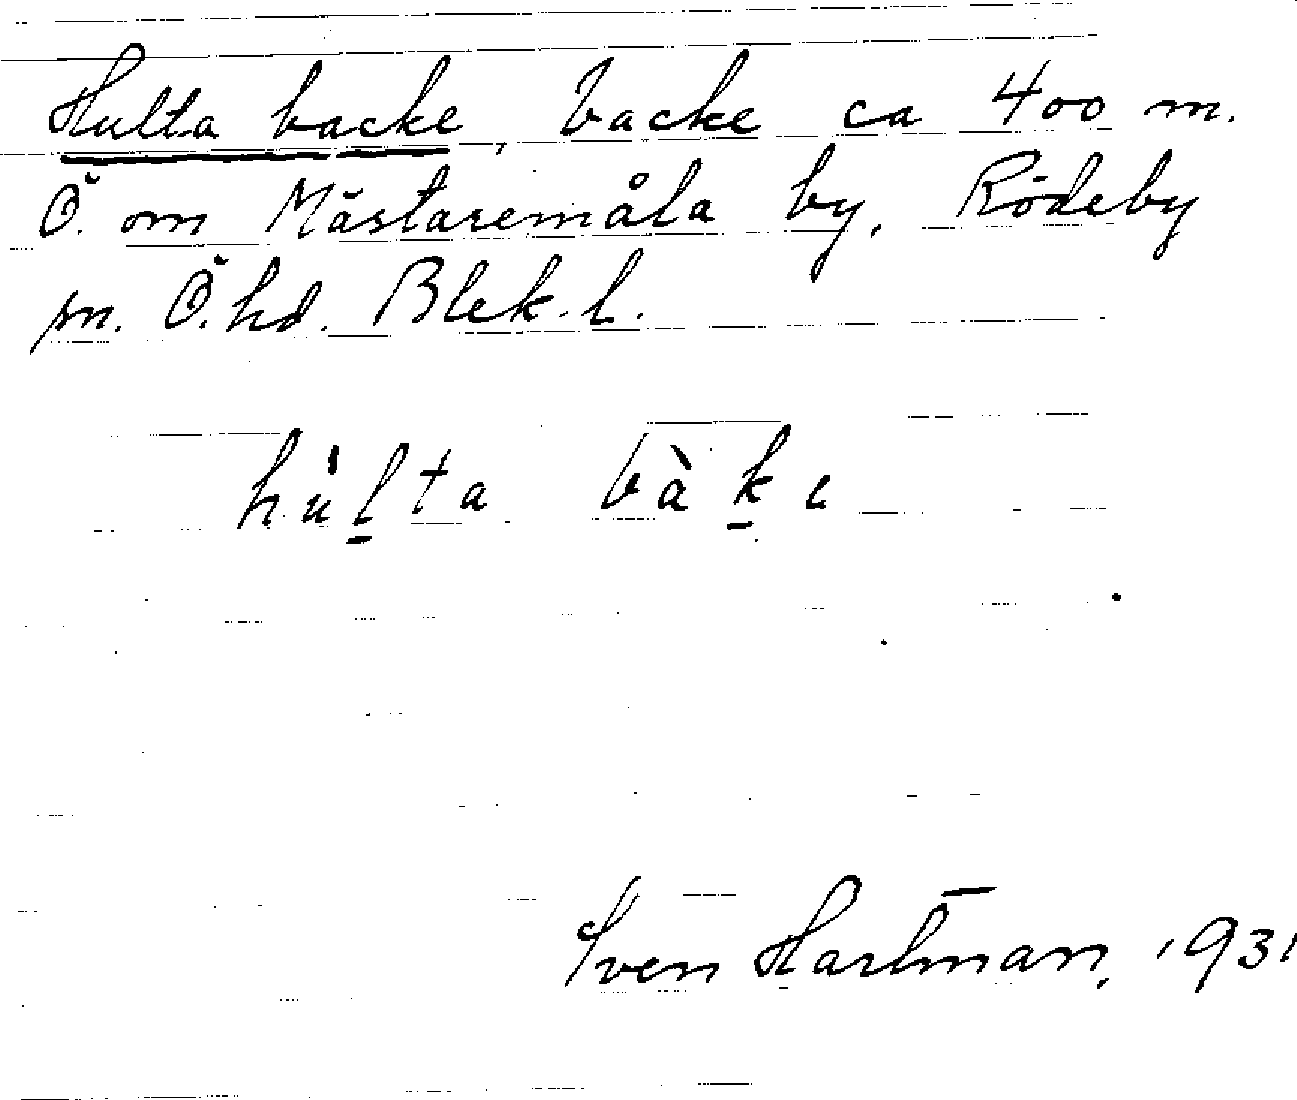 Hulta backe, backe ca 400 m.
Ö. om Mästaremåla by, Rödeby
sn. Ö. hd. Blek. l.
hu̇l̠ta bàk̠e
Sven Hartman, 1931